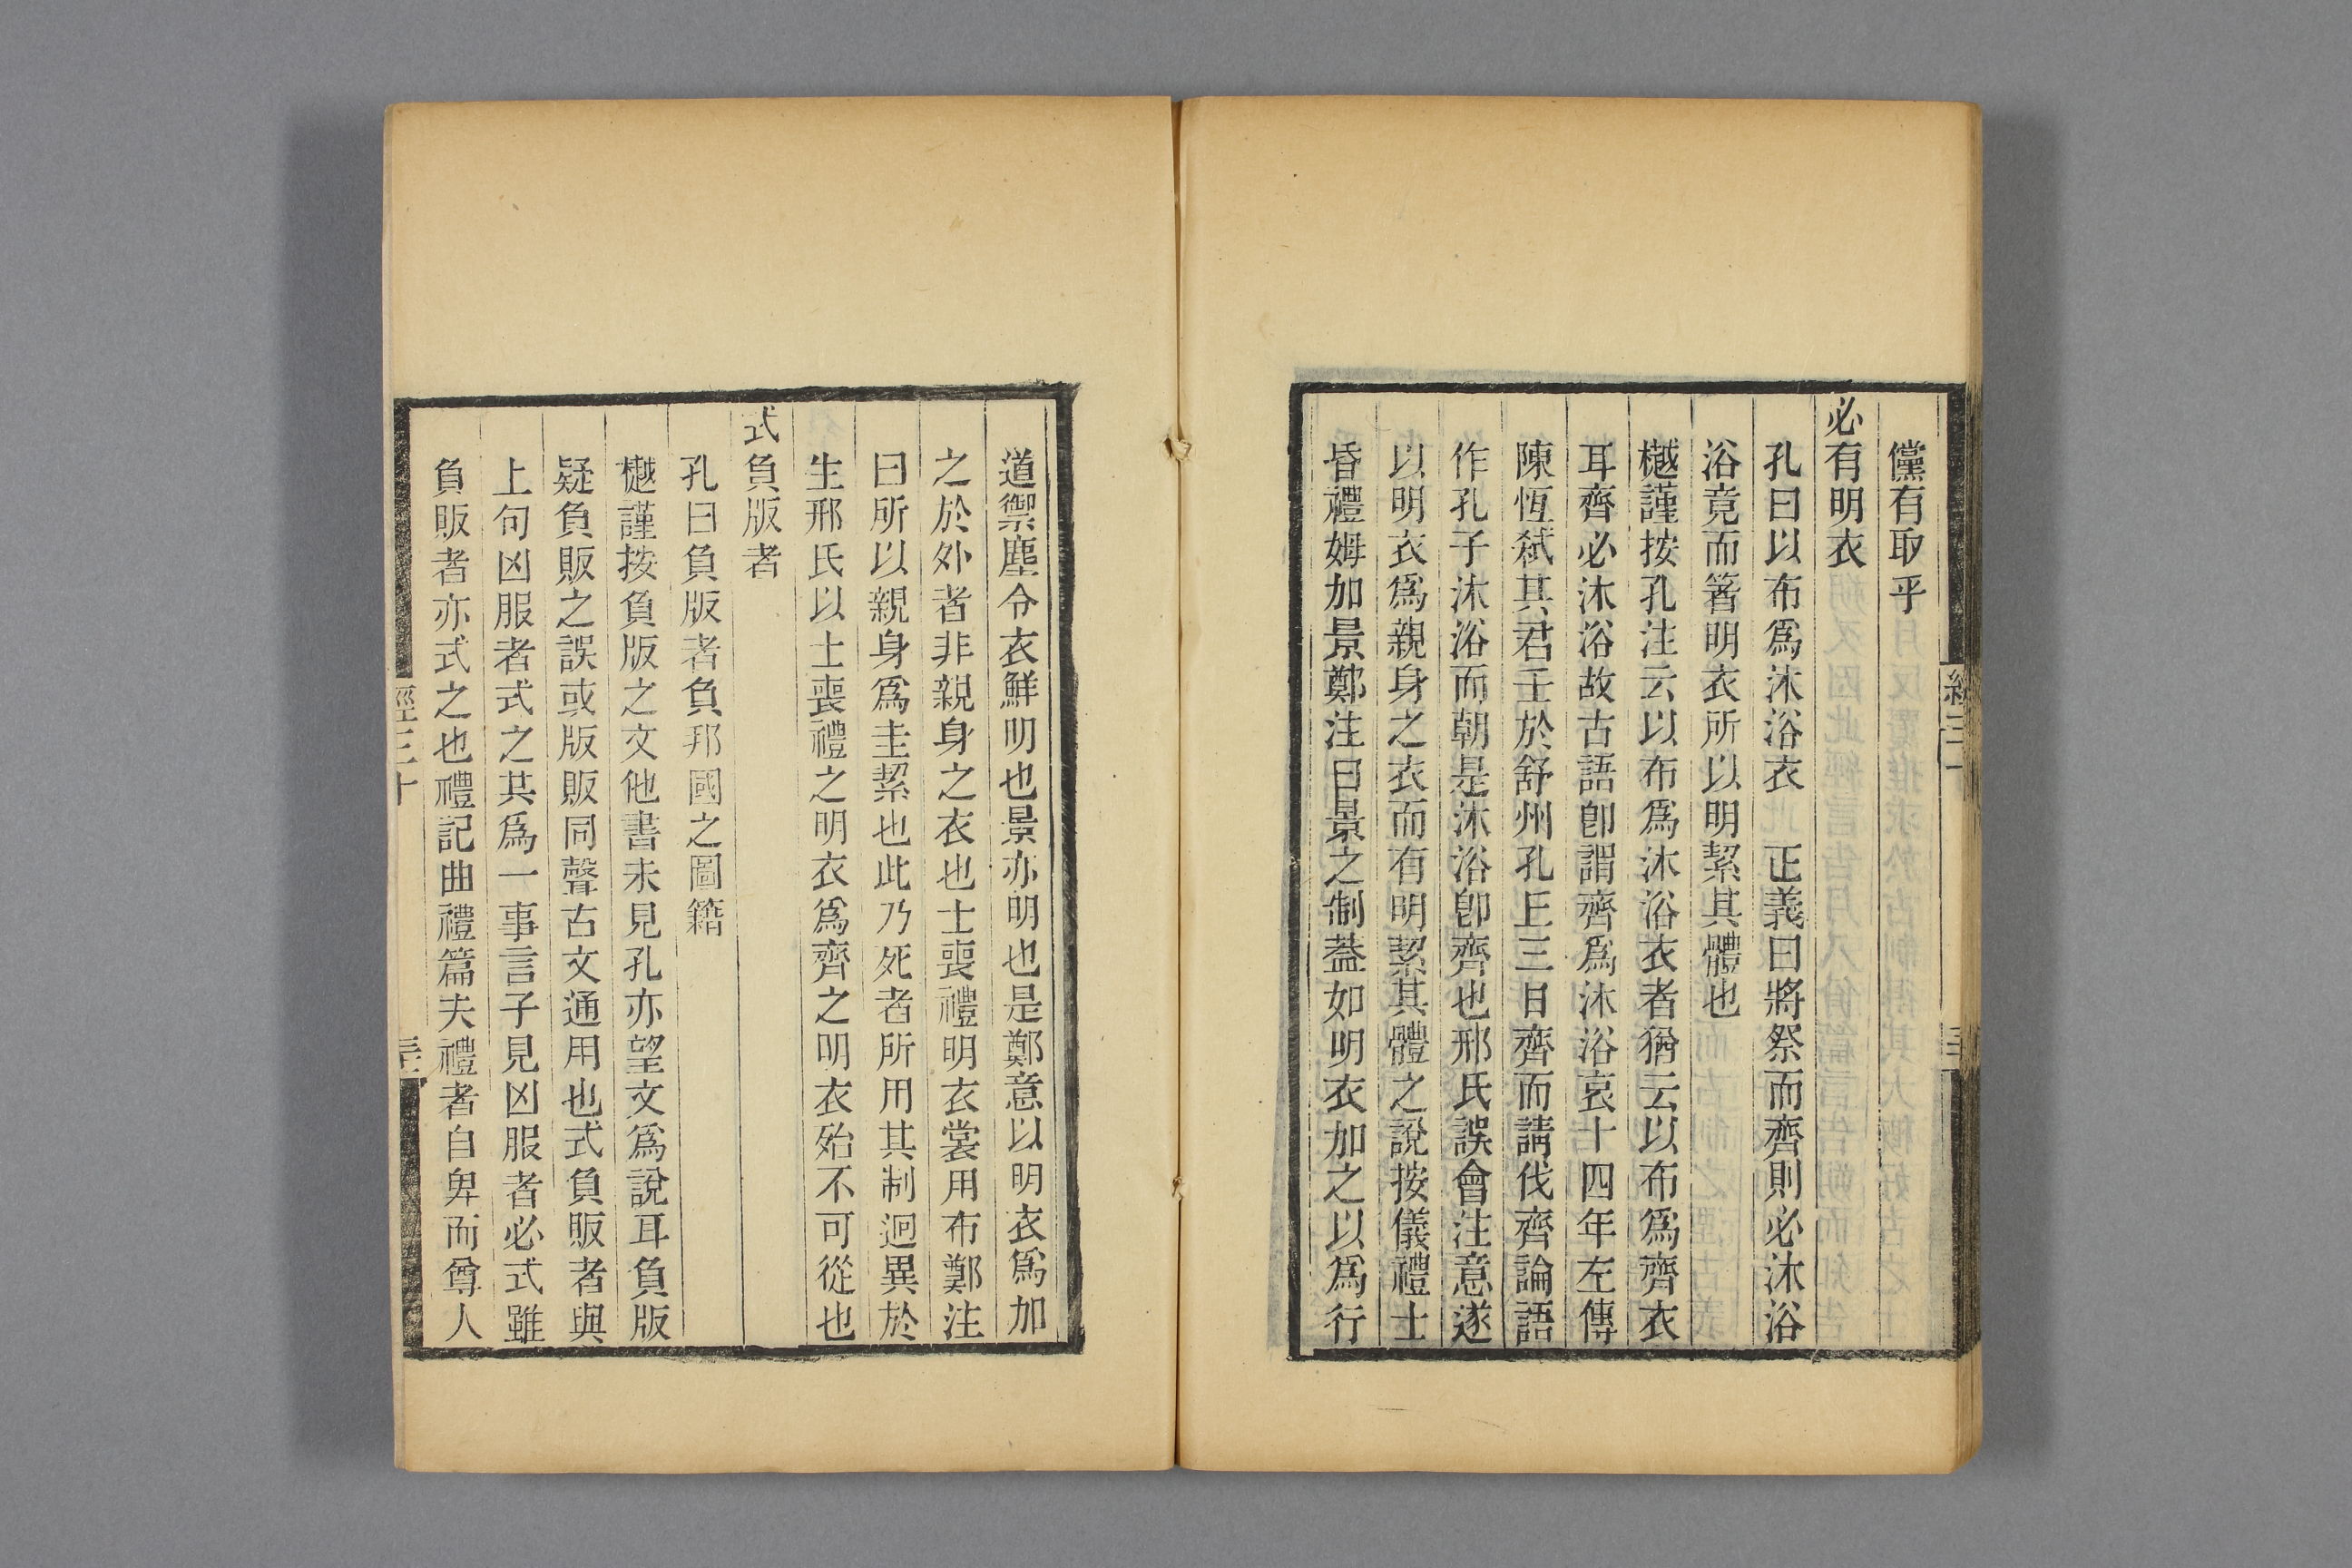 儻有取乎
必有明衣
孔曰以布爲沐浴衣　正義曰將祭而齊則必沐浴
浴竟而箸明衣所以明絜其體也
樾謹按孔注云以布爲沐浴衣者猶云以布爲齊衣
耳齊必沐浴故古語卽謂齊爲沐浴哀十四年左傳
陳恆弑其君壬於舒州孔丘三日齊而請伐齊論語
作孔子沐浴而朝是沐浴卽齊也邢氏誤會注意遂
以明衣爲親身之衣而有明絜其體之說按儀禮士
昏禮姆加景鄭注曰景之制蓋如明衣加之以爲行
道禦塵令衣鮮明也景亦明也是鄭意以明衣爲加
之於外者非親身之衣也士喪禮明衣裳用布鄭注
曰所以親身爲圭絜也此乃死者所用其制迥異於
生邢氏以士喪禮之明衣爲齊之明衣殆不可從也
式負版者
孔曰負版者負邦國之圖籍
樾謹按負版之文他書未見孔亦望文爲說耳負版
疑負販之誤或版販同聲古文通用也式負販者與
上句凶服者式之其爲一事言子見凶服者必式雖
負販者亦式之也禮記曲禮篇夫禮者自卑而尊人
經三十